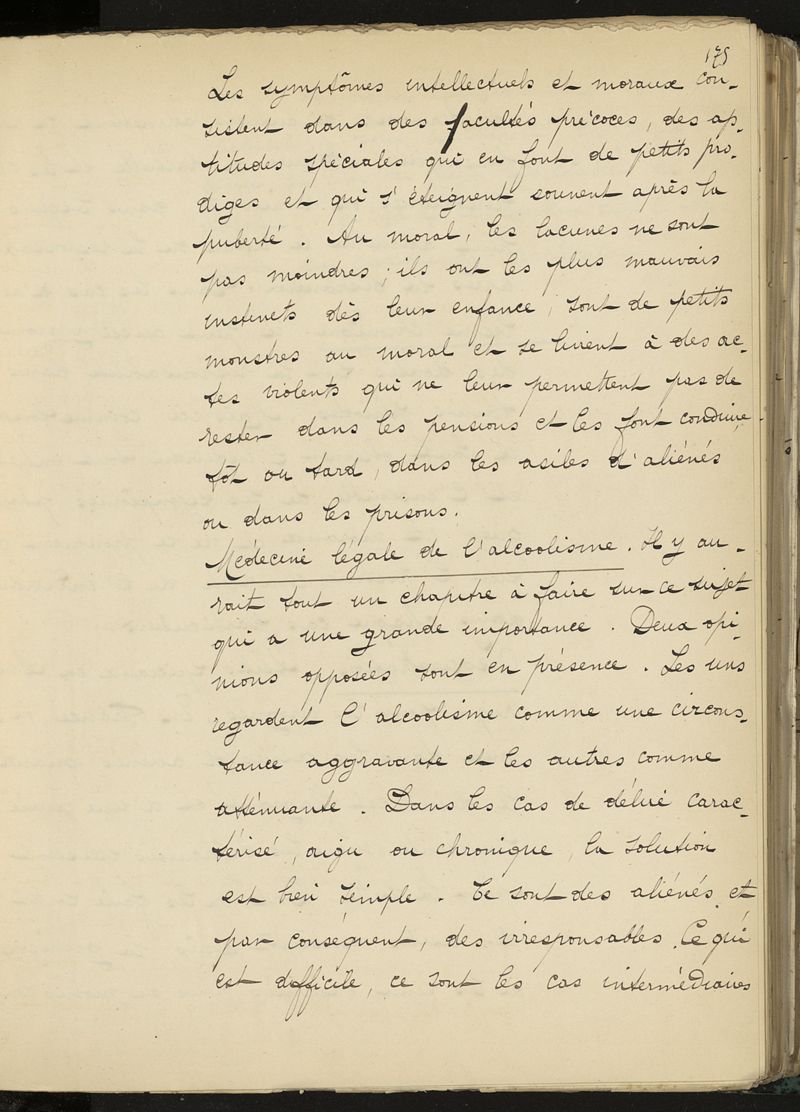 175
Les symptômes intellectuels et moraux con-
sistent dans des facultés précoces, des ap-
titudes spéciales qui en font de petits pro-
diges et qui s'éteignent souvent après la
puberté. Au moral, les lacunes ne sont
pas moindres ; ils ont les plus mauvais
instincts dès leur enfance, sont de petits
monstres au moral et se livrent à des ac-
tes violents qui ne leur permettent pas de
rester dans les pensions et les font conduire,
tôt ou tard, dans les asiles d'aliénés
ou dans les prisons.
Médecine légale de l'alcoolisme. Il y au-
rait tout un chapitre à faire sur ce sujet
qui a une grande importance. Deux opi-
nions opposées sont en présence. Les uns
regardent l'alcoolisme comme une circons-
tance aggravante et les autres comme
atténuante. Dans les cas de délire carac-
térisé, aigu ou chronique, la solution
est bien simple. Ce sont des aliénés et
par conséquent, des irresponsables. Ce qui
est difficile, ce sont les cas intermédiaires